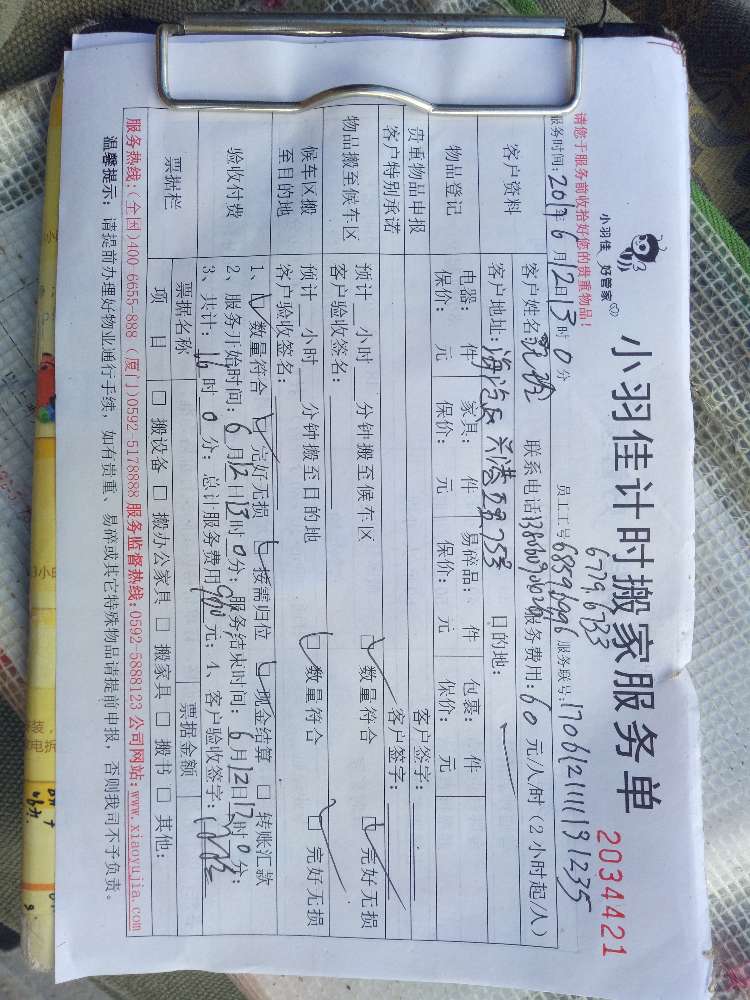 小羽佳计时搬家服务单
2034421
小羽佳 好管家
请您于服务前收拾好您的贵重物品!
6779.6733
服务时间:2017年6月12日13时0分 员工工号6859.6996 服务联号:170612111191235
客户资料
客户姓名: 联系电话 服务费用:60元/人/时(2小时起/人)
客户地址:海沧区 目的地:
物品登记
电器: 件 家具: 件 易碎品: 件 包裹: 件
保价: 元 保价: 元 保价: 元 保价: 元
贵重物品申报 客户签字:
客户特别承诺 客户签字:
物品搬至候车区
预计__小时__分钟搬至候车区 □数量符合 □完好无损
客户验收签名:
候车区搬至目的地
预计__小时__分钟搬至目的地 □数量符合 □完好无损
客户验收签名:
验收付费
1、□数量符合 □完好无损 □按需归位 □现金结算 □转账汇款
2、服务开始时间:6月12日13时0分;服务结束时间:6月12日17时0分;
3、共计:16时0分;总计服务费用:960元;4、客户验收签字:
票据栏
票据名称 票据金额
项目 □搬设备 □搬办公家具 □搬家具 □搬书 □其他:
服务热线:(全国)400-6655-888 (厦门)0592-5178888 服务监督热线:0592-5888123 公司网站:www.xiaoyujia.com
温馨提示:请提前办理好物业通行手续,如有贵重、易碎或其它特殊物品请提前申报,否则我司不予负责。